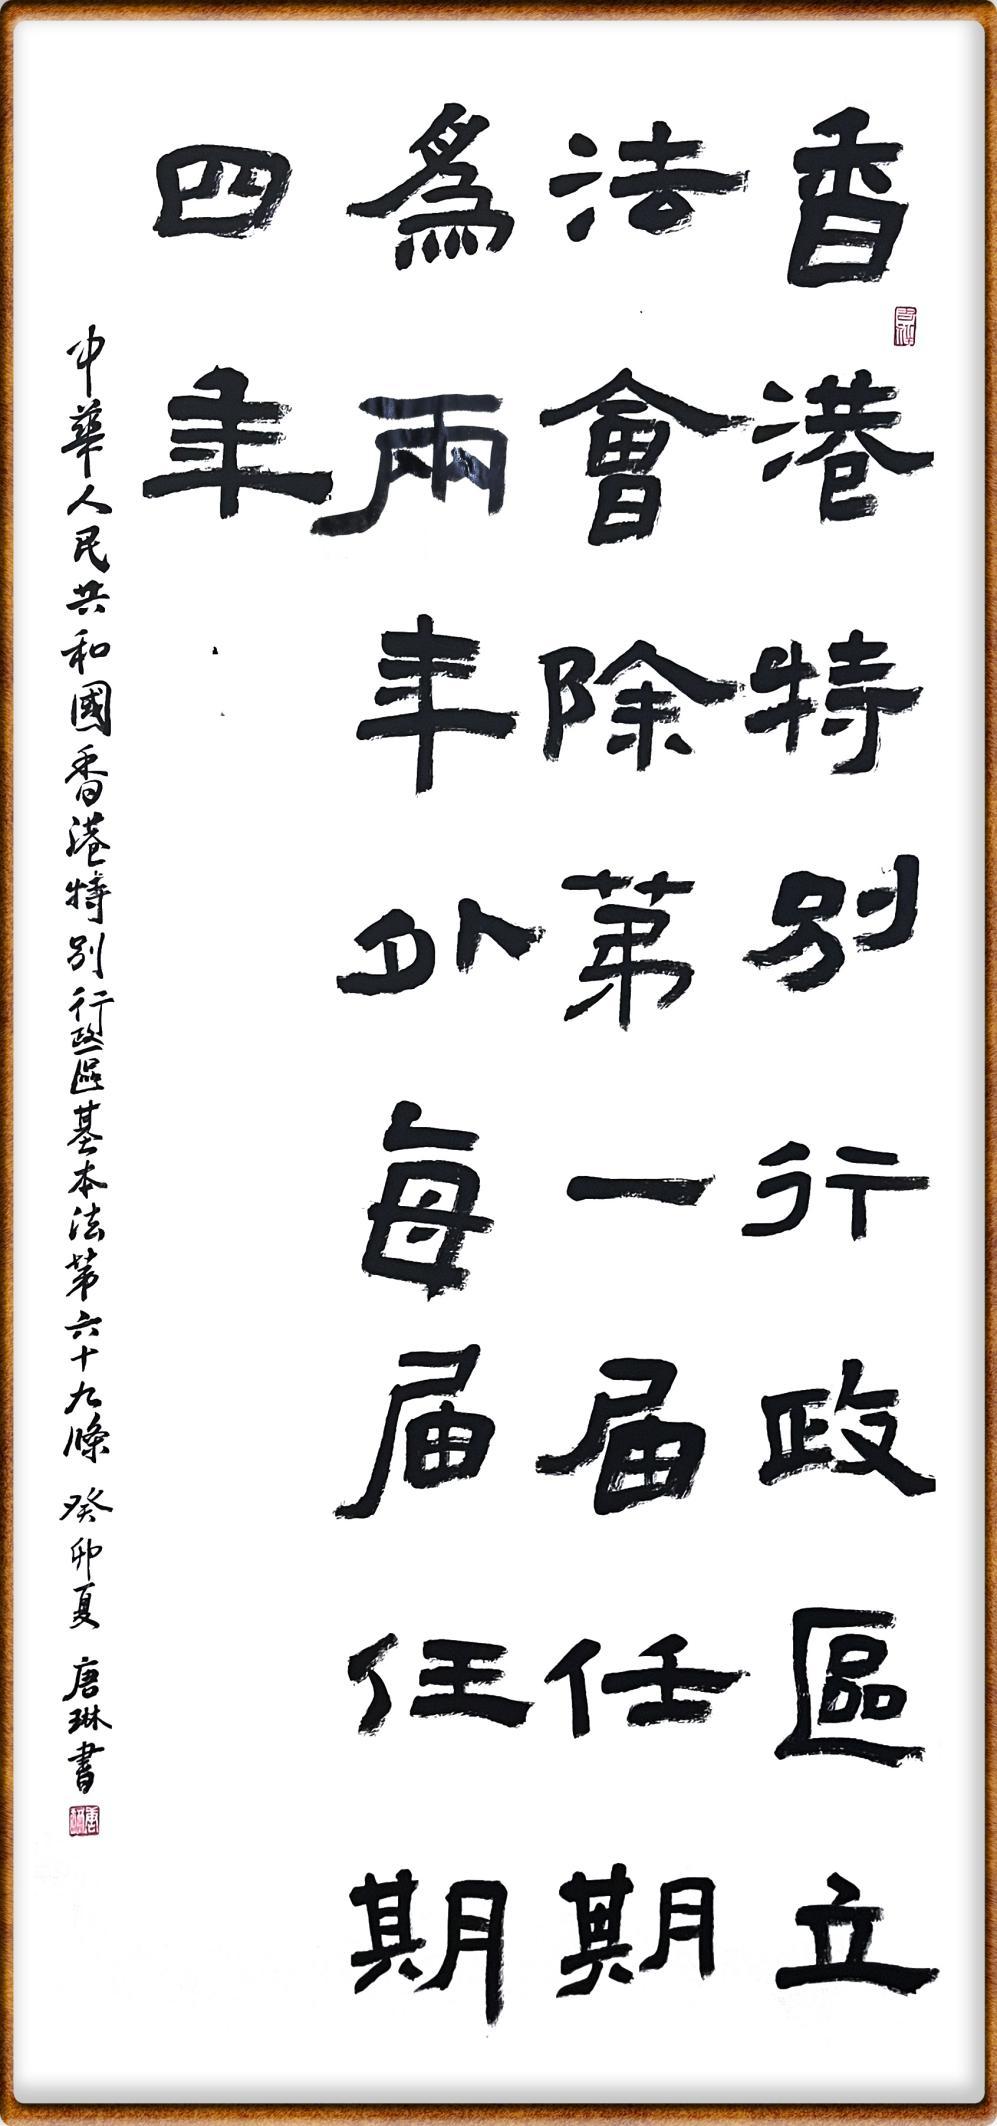 香港特別行政區立
法會除第一屆任期
為兩年外每屆任期
四年
中華人民共和國香港特別行政區基本法第六十九條 癸卯夏 唐琳書